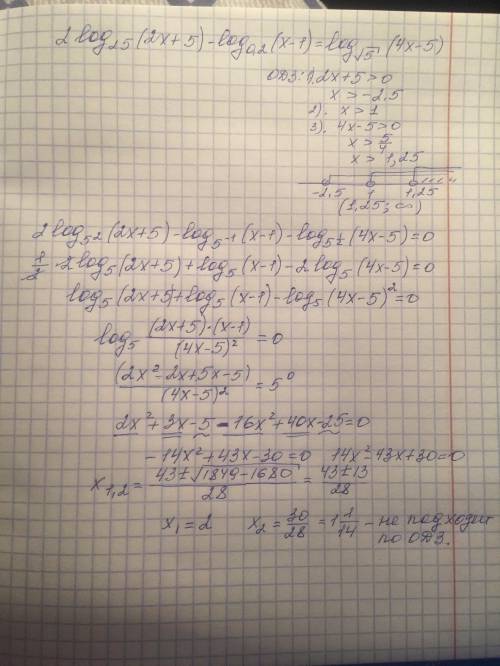 2 log₂₅ (2x+5) - log₀,₂ (x-1) = log_√5 (4x-5)
ОДЗ: 1). 2x+5>0
x > -2,5
2). x > 1
3). 4x-5>0
x > 5/4
x > 1,25
-2,5 1 1,25
(1,25; ∞)
2 log₅² (2x+5) - log₅⁻¹ (x-1) - log₅^½ (4x-5) = 0
1/2 · 2 log₅ (2x+5) + log₅ (x-1) - 2 log₅ (4x-5) = 0
log₅ (2x+5 + log₅ (x-1) - log₅ (4x-5)² = 0
log₅ (2x+5)·(x-1)/(4x-5)² = 0
(2x²-2x+5x-5)/(4x-5)² = 5⁰
2x²+3x-5-16x²+40x-25=0
-14x²+43x-30=0 14x²-43x+30=0
x₁,₂ = (43±√1849-1680)/28 = (43±13)/28
x₁ = 2 x₂ = 30/28 = 1 1/14 - не подходит
по ОДЗ.